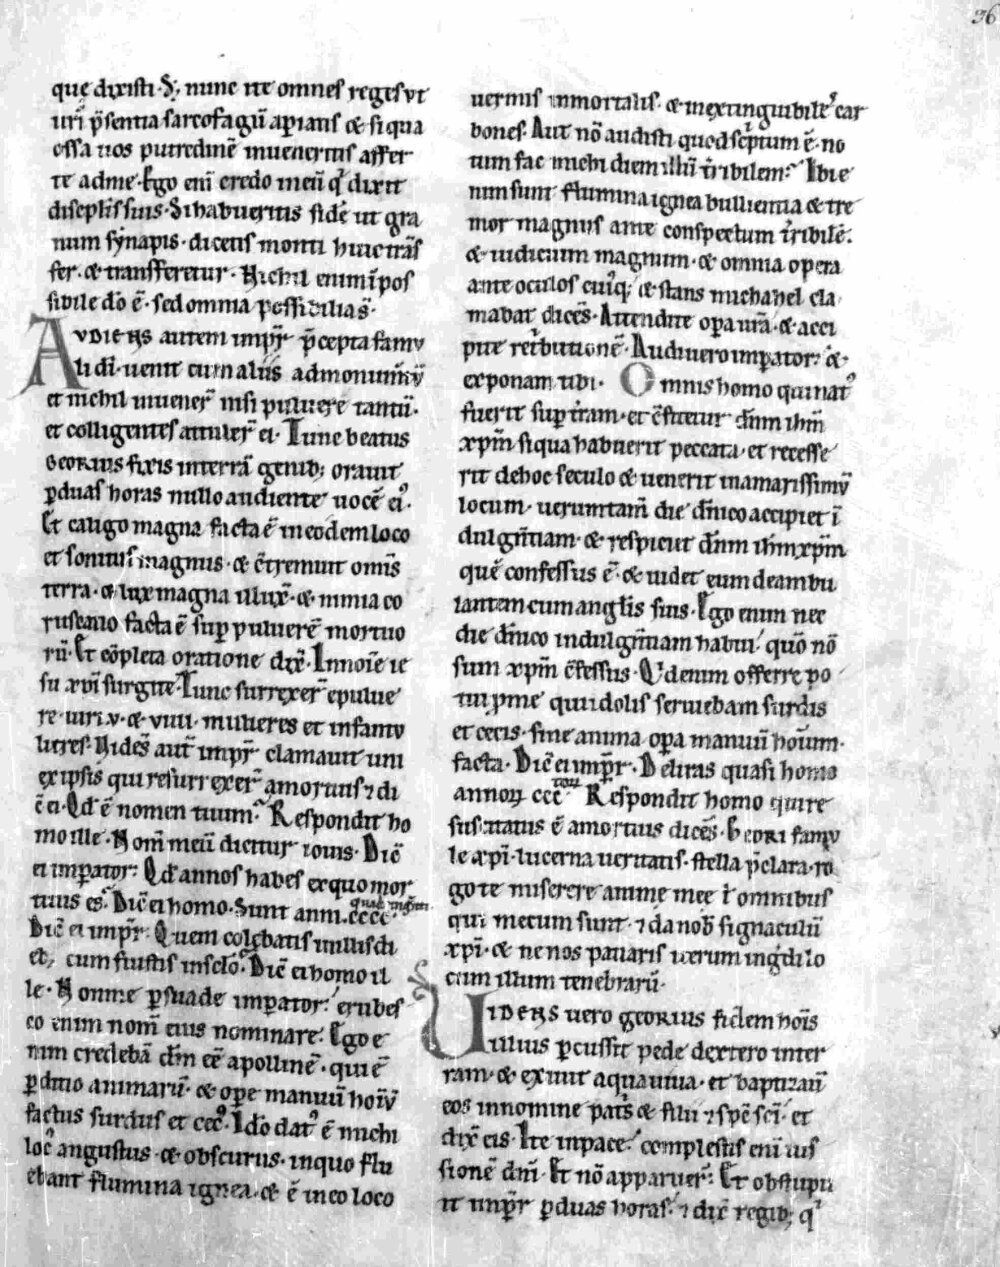 36
quę dixisti. S; nunc ite omnes reges ut
uri p̄sentia sarcofagū apians & si qua
ossa uos putredinē inueneritis affer
te ad me. Ego enī credo meū qd̄ dixit
discipłis suis. Si habueritis fidē ut gra
num synapis. dicens monti huic trās
fer. & transferetur. Nichil enim īpos
sibile dō ē. sed omnia possibilia s̄.
AUDIENS autem impr̄ p̄cepta famu
li dī. uenit cum aliis ad monum̄tū
et nichil inuener̄ nisi puluerē tantū.
et colligentes attuler̄ ei. Tunc beatus
GEORIUS fixis in terrā genib; orauit
ꝑ duas horas nullo audiente uocē eiꝰ.
Et caligo magna facta ē in eodem loco
et sonitus magnus. & c̄tremuit omīs
terra. & lux magna illux̄. & nimia co
ruscatio facta ē sup̱ puluerē mortuo
rū. Et cōpleta oratione dix̄. In noīe ie
su xpī surgite. Tunc surrexer̄ epulue
re uiri .v. & viiii. mulieres et infantu
li tres. Uidēs aut̄ impr̄ clamauit uni
ex ipsis qui resurrexer̄ a mortuis ⁊ di
c̄ ei. Qd̄ ē nomen tuum. Respondit ho
mo ille. Nom̄ meū dicitur iouis. Dic̄
ei imperator: Qd̄ annos habes ex quo mor
tuus es. Dic̄ ei homo. Sunt anni cccc.
Dic̄ ei impr̄. Quem colebatis in illis di
eb; cum fuistis in sc̄lo. Dic̄ ei homo il
le. Non me ꝑsuade imperator. erubes
co enim nom̄ eius nominare. Ego e
nim credebā dm̄ eē apollinē. qui ē
ꝑditio animarū. & ope manuū hoīū
factus surdus et cecꝰ. Ido datꝰ ē michi
locꝰ angustus. & obscurus. in quo flu
ebant flumina ignea. & ē in eo loco
uermis inmortalis. & inextinguibiles car
bones. Aut nō audisti quod sc̄ptum ē. no
tum fac michi diem illū tr̄ibilem. Ibi e
nim sunt flumina ignea bullientia & tre
mor magnus ante conspectum tr̄ibilē.
& iudicium magnum. & omnia opera
ante oculos cuiꝰq; & stans michahel cla
mabat dicēs. Attendite oꝑa urā. & acci
pite ret̄butionē. Audi uero imperator. &
exponam tibi. Omnis homo qui natꝰ
fuerit sup̱ tr̄am. et c̄fitetur dnm̄ ihm̄
xpm̄ si qua habuerit peccata. et recesse
rit de hoc seculo & uenerit in amarissimū
locum. uerumtam̄ die dn̄ico accipiet ī
dulgn̄tiam. & respiciet dnm̄ ihm̄ xpm̄
quē confessus ē. & uidet eum deambu
lantem cum angłis suis. Ego enim nec
die dn̄ico indulgn̄tiam habui. quō nō
sum xpm̄ c̄fessus. Qd̄ enim offerre po
tui ꝑ me qui idolis seruiebam surdis
et cecis. sine anima oꝑa manuū hoīum.
facta. Dic̄ ei impr̄. Deliras quasi homo
annoꝝ cccc. Respondit homo qui re
suscitatus ē a mortuis dicēs. GEORI famu
le xpī. lucerna ueritatis. stella p̄clara. ro
go te miserere animę męę t̄ omnibus
qui mecum sunt. ⁊ da nob̄ signaculū
xpī. & ne nos patiaris iterum ingd̄i lo
cum illum tenebrarū.
UIDENS uero GEORIUS fidem hoīs
illius ꝑcussit pede dextero in ter
ram. & exiuit aqua uiua. et baptizauī
eos in nomine patr̄s & filii ⁊ sp̄c sc̄i. et
dix̄ eis. Ite in pace. complestis enī ius
sionē dnī. Et nō apparuer̄. Et obstupu
it impr̄ ꝑ duas horas. ⁊ dix̄ regib; qꝰ